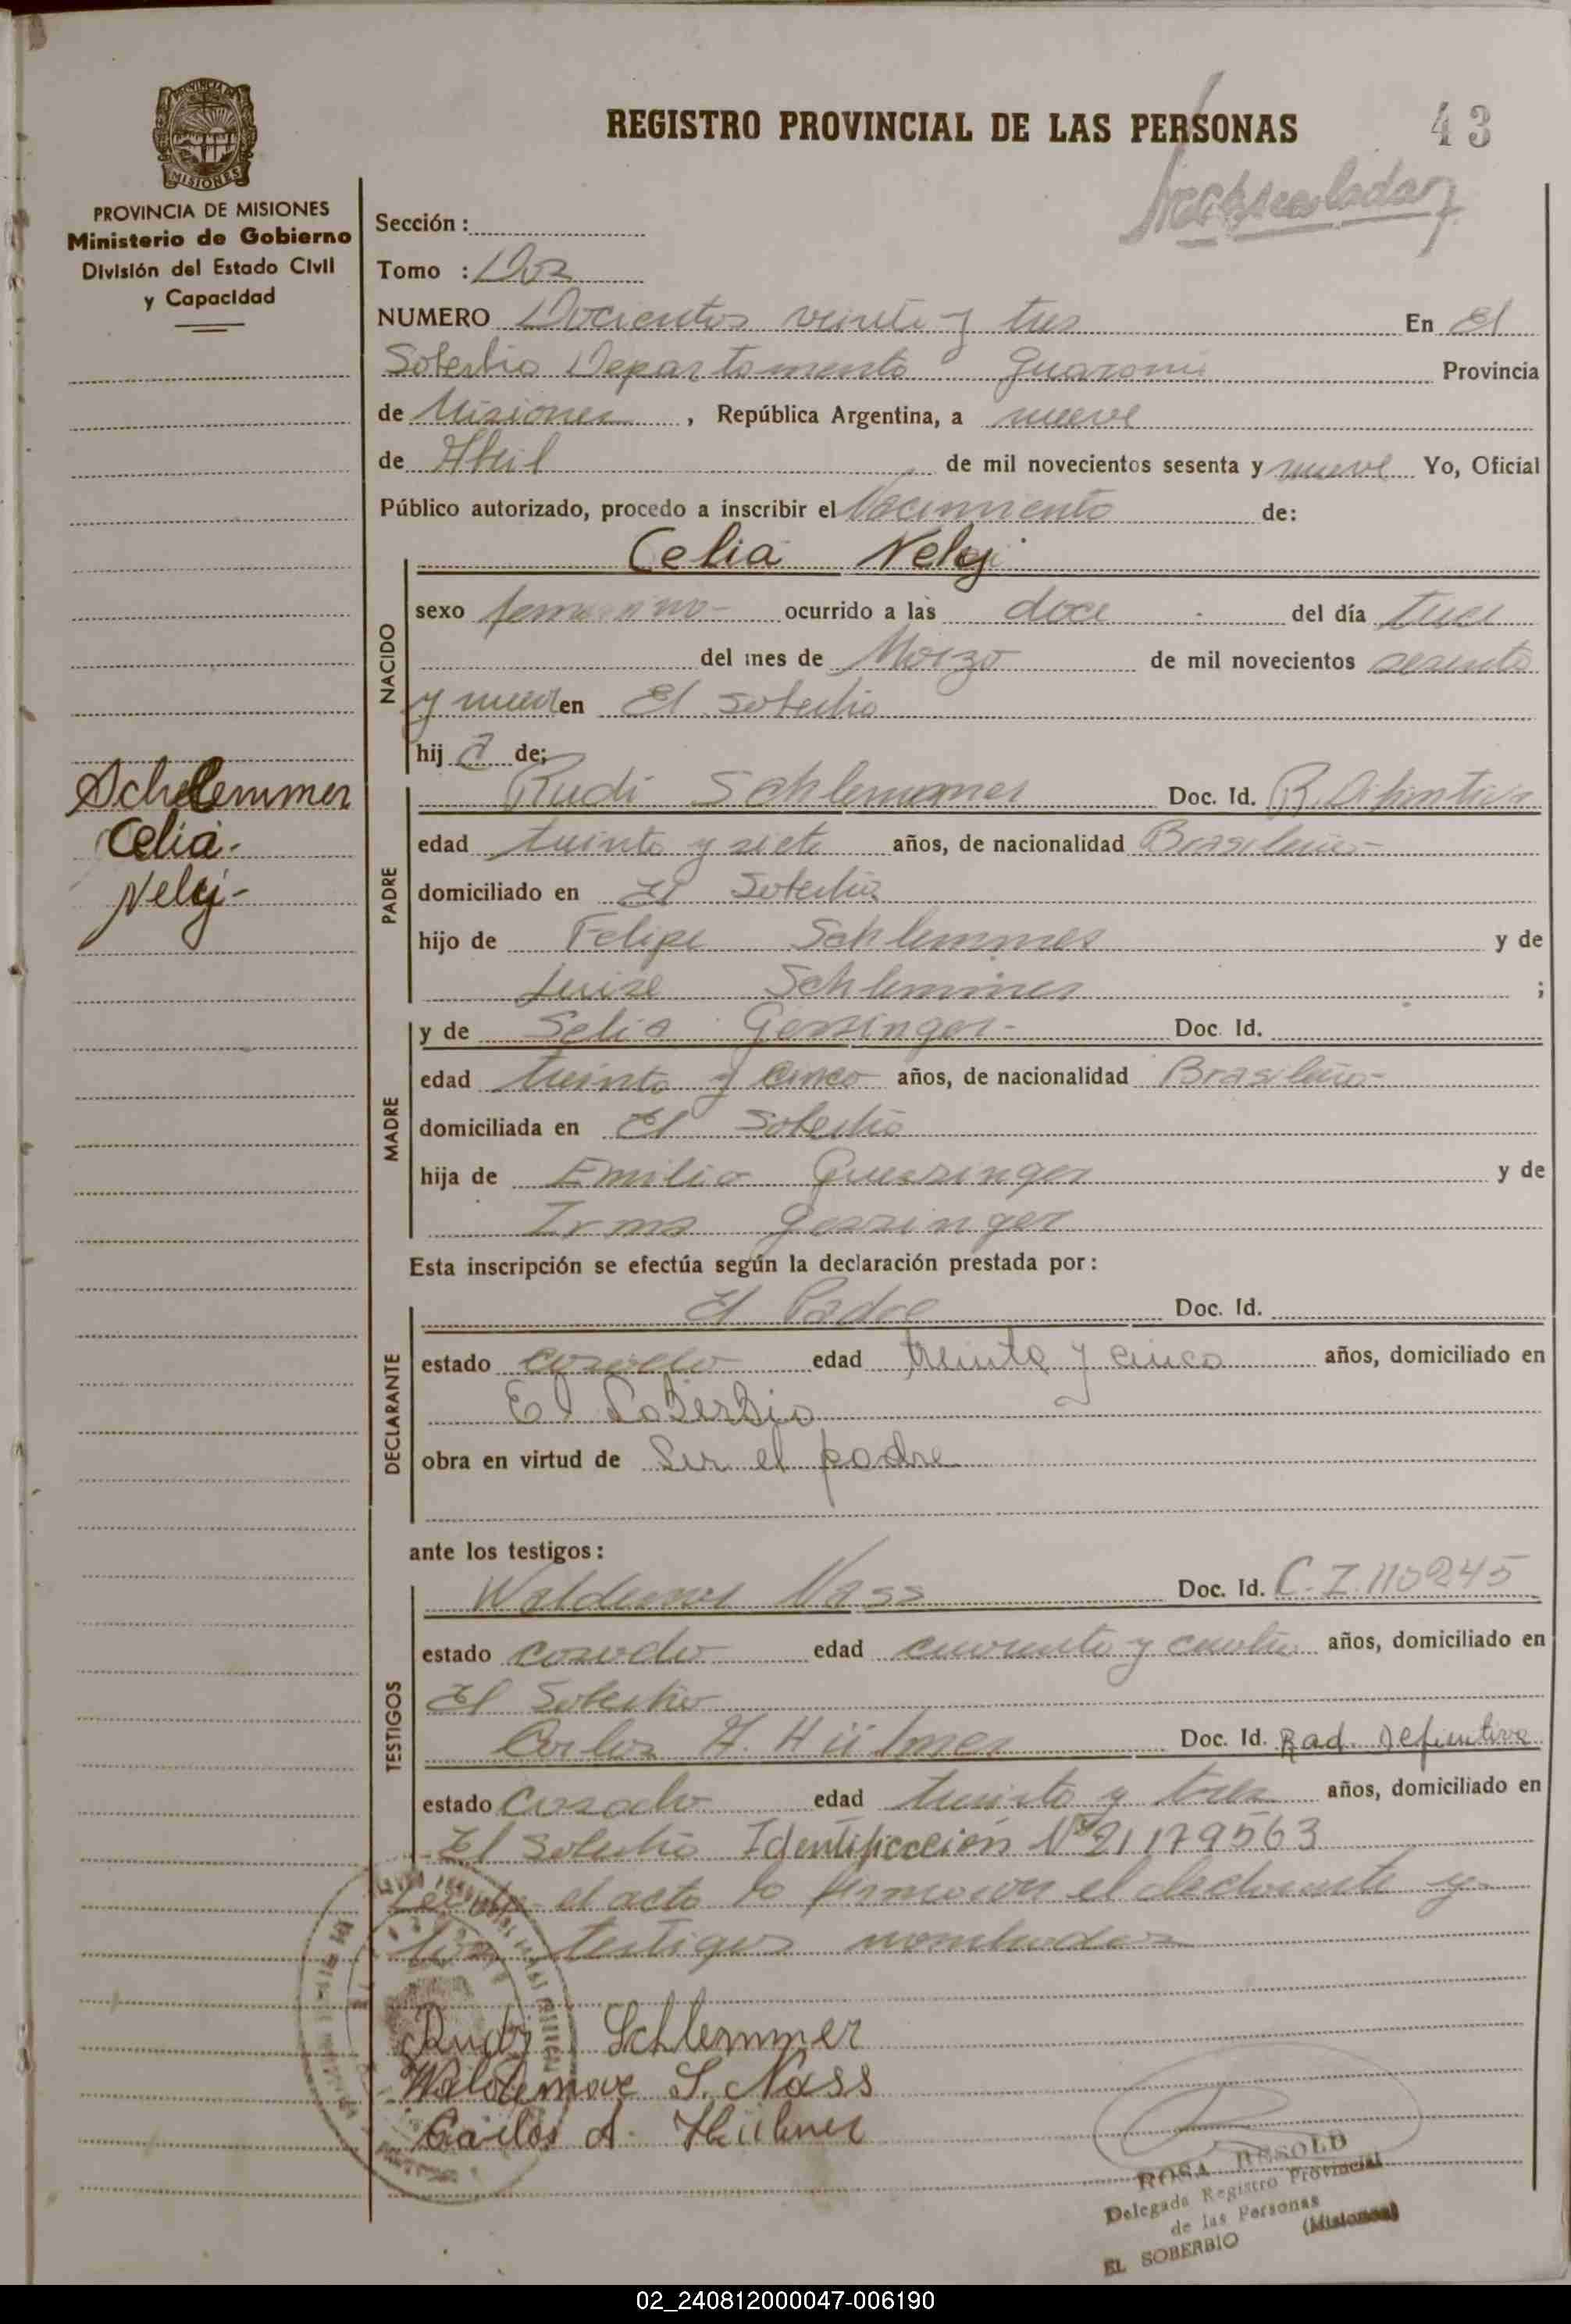 REGISTRO PROVINCIAL DE LAS PERSONAS
43
PROVINCIA DE MISIONES
Ministerio de Gobierno
División del Estado Civil
y Capacidad
Sección :
Tomo : Dos
NUMERO Docientos veinte y tres En El
Soberbio Departamento Guarani Provincia
de Misiones , República Argentina, a nueve
de Abril de mil novecientos sesenta y nueve Yo, Oficial
Público autorizado, procedo a inscribir el Nacimiento de:
Celia Nely
NACIDO
sexo femenino- ocurrido a las doce - del día trece
del mes de Marzo de mil novecientos sesenta
y nueve en El Soberbio
hij a de;
Schelemmer
Celia-
Nely-
PADRE
Rudi Schlemmer Doc. Id. R. Difinitiva
edad treinta y siete años, de nacionalidad Brasileño-
domiciliado en El Soberbio
hijo de Felipe Schlemmer y de
Luise Schlemmer ;
MADRE
y de Selia Gessinger- Doc. Id.
edad treinta y cinco años, de nacionalidad Brasileña-
domiciliada en El Soberbio
hija de Emilio Guessinger y de
Irma Gessinger
Esta inscripción se efectúa según la declaración prestada por :
DECLARANTE
El Padre Doc. Id.
estado casado edad treinta y cinco años, domiciliado en
El Soberbio
obra en virtud de Ser el padre
ante los testigos :
TESTIGOS
Waldemar Nass Doc. Id. C. I. 110245
estado casado edad cuarenta y cuatro años, domiciliado en
El Soberbio
Carlos A. Hülmer Doc. Id. Rad. Definitiva
estado Casado edad treinta y tres años, domiciliado en
El Soberbio Identificación Nº 21179563
el acta lo firmaron el declarante y
los testigos nombrados
Rudi Schlemmer
Waldemar S. Nass
Carlos A. Hübner
ROSA
Delegada Registro Provincial
de las Personas
EL SOBERBIO (Misiones)
02_240812000047-006190